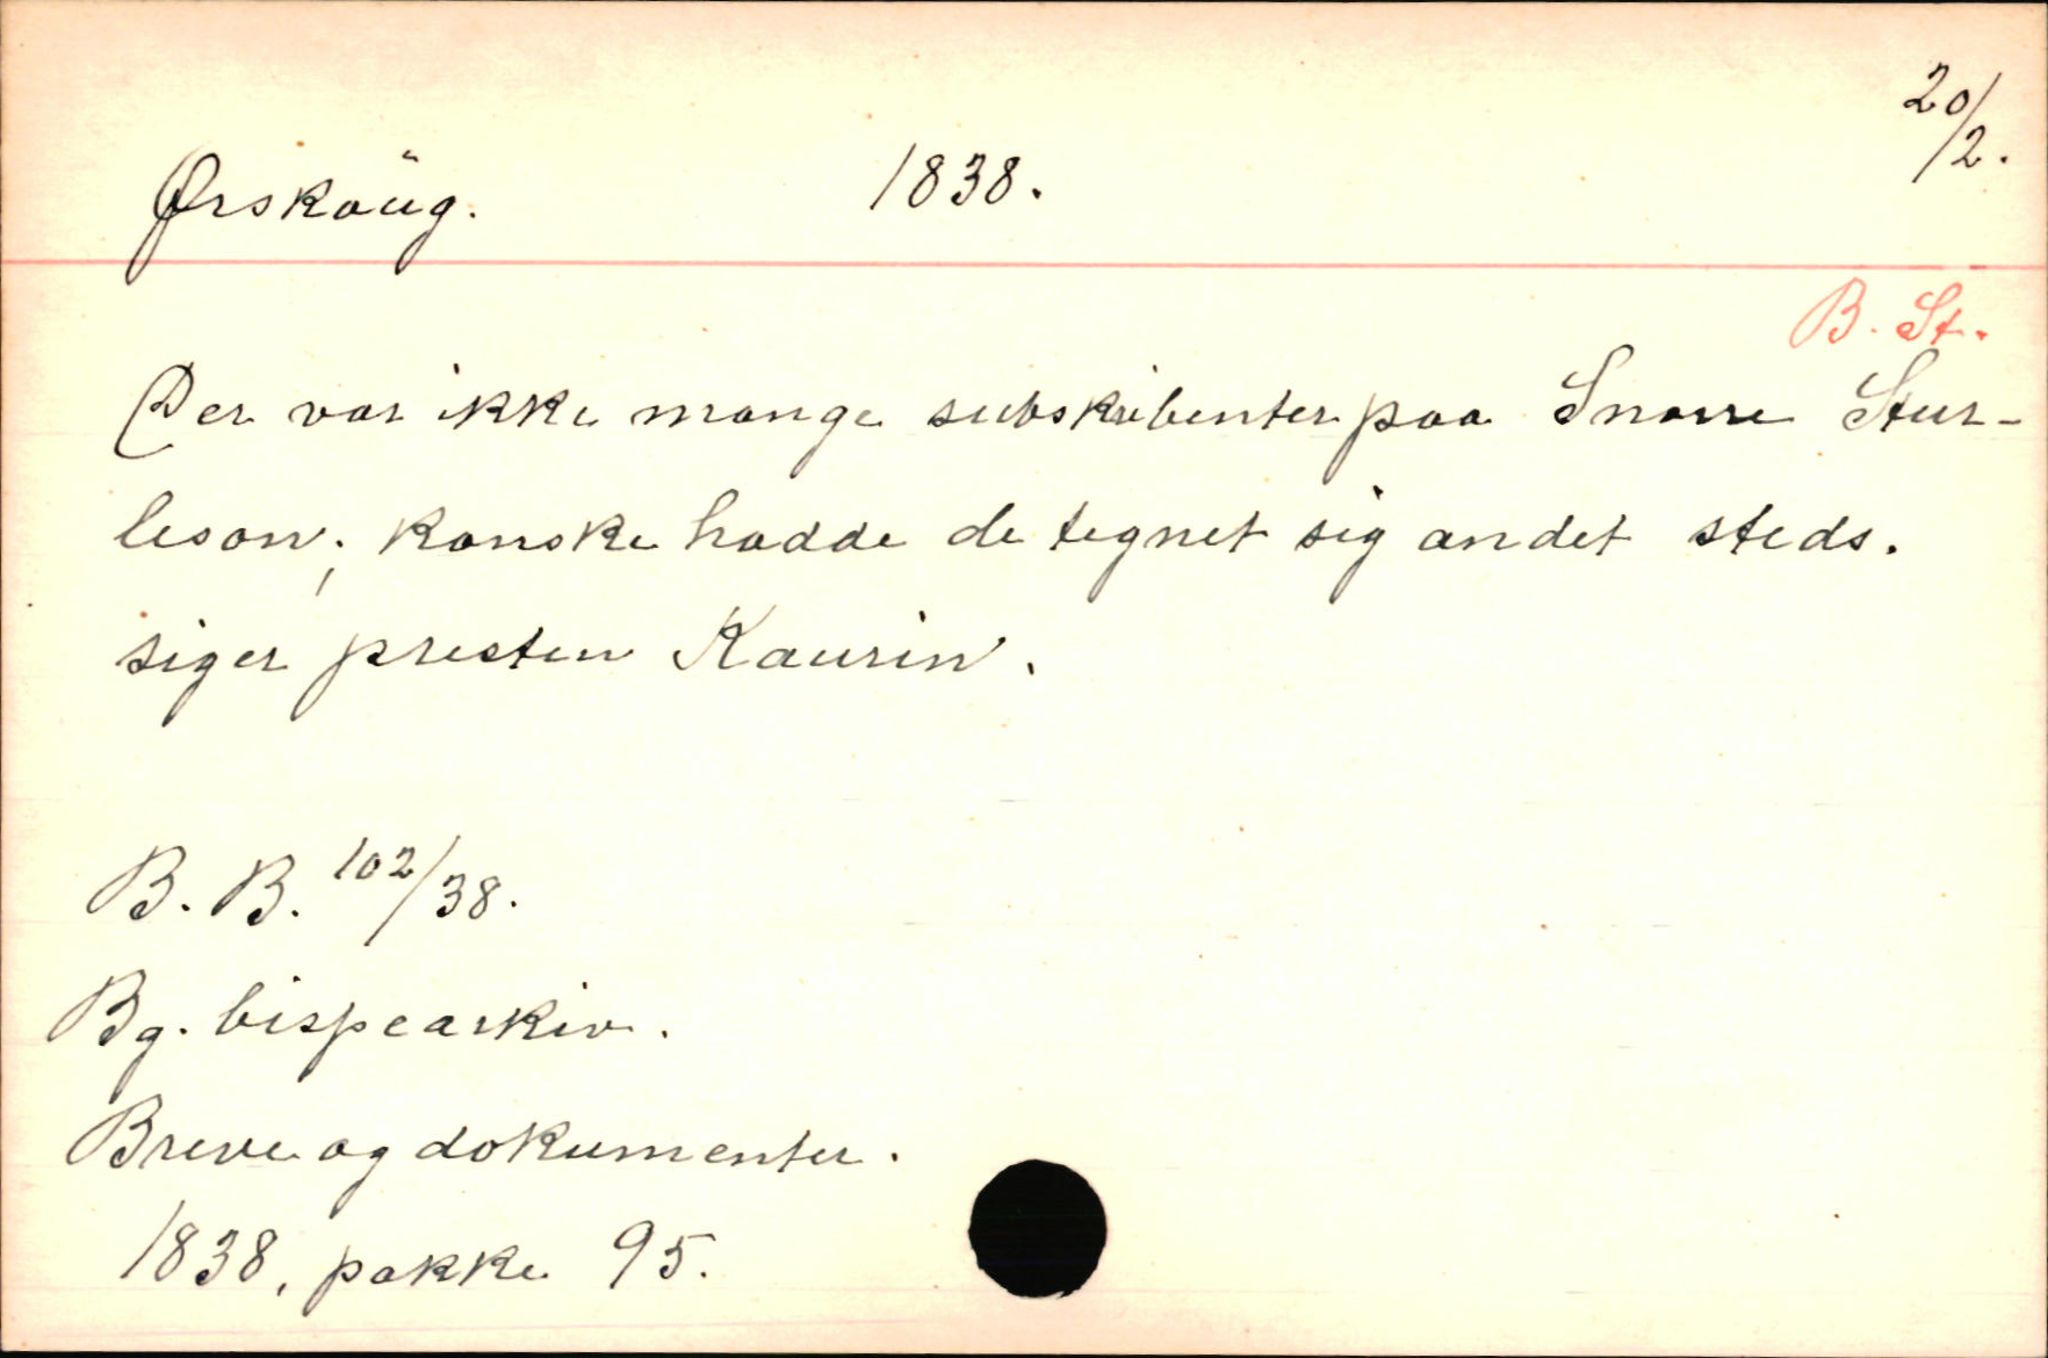 Ørskoüg. 1838. 20/2.
B. St.
Der var ikke mange subskribenter paa Snorre Stur-
leson; kanske hadde de tegnet sig andet steds.
siger presten Kaurin.
B. B. 102/38.
Bg. bispearkiv.
Breve og dokumenter.
1838, pakke 95.